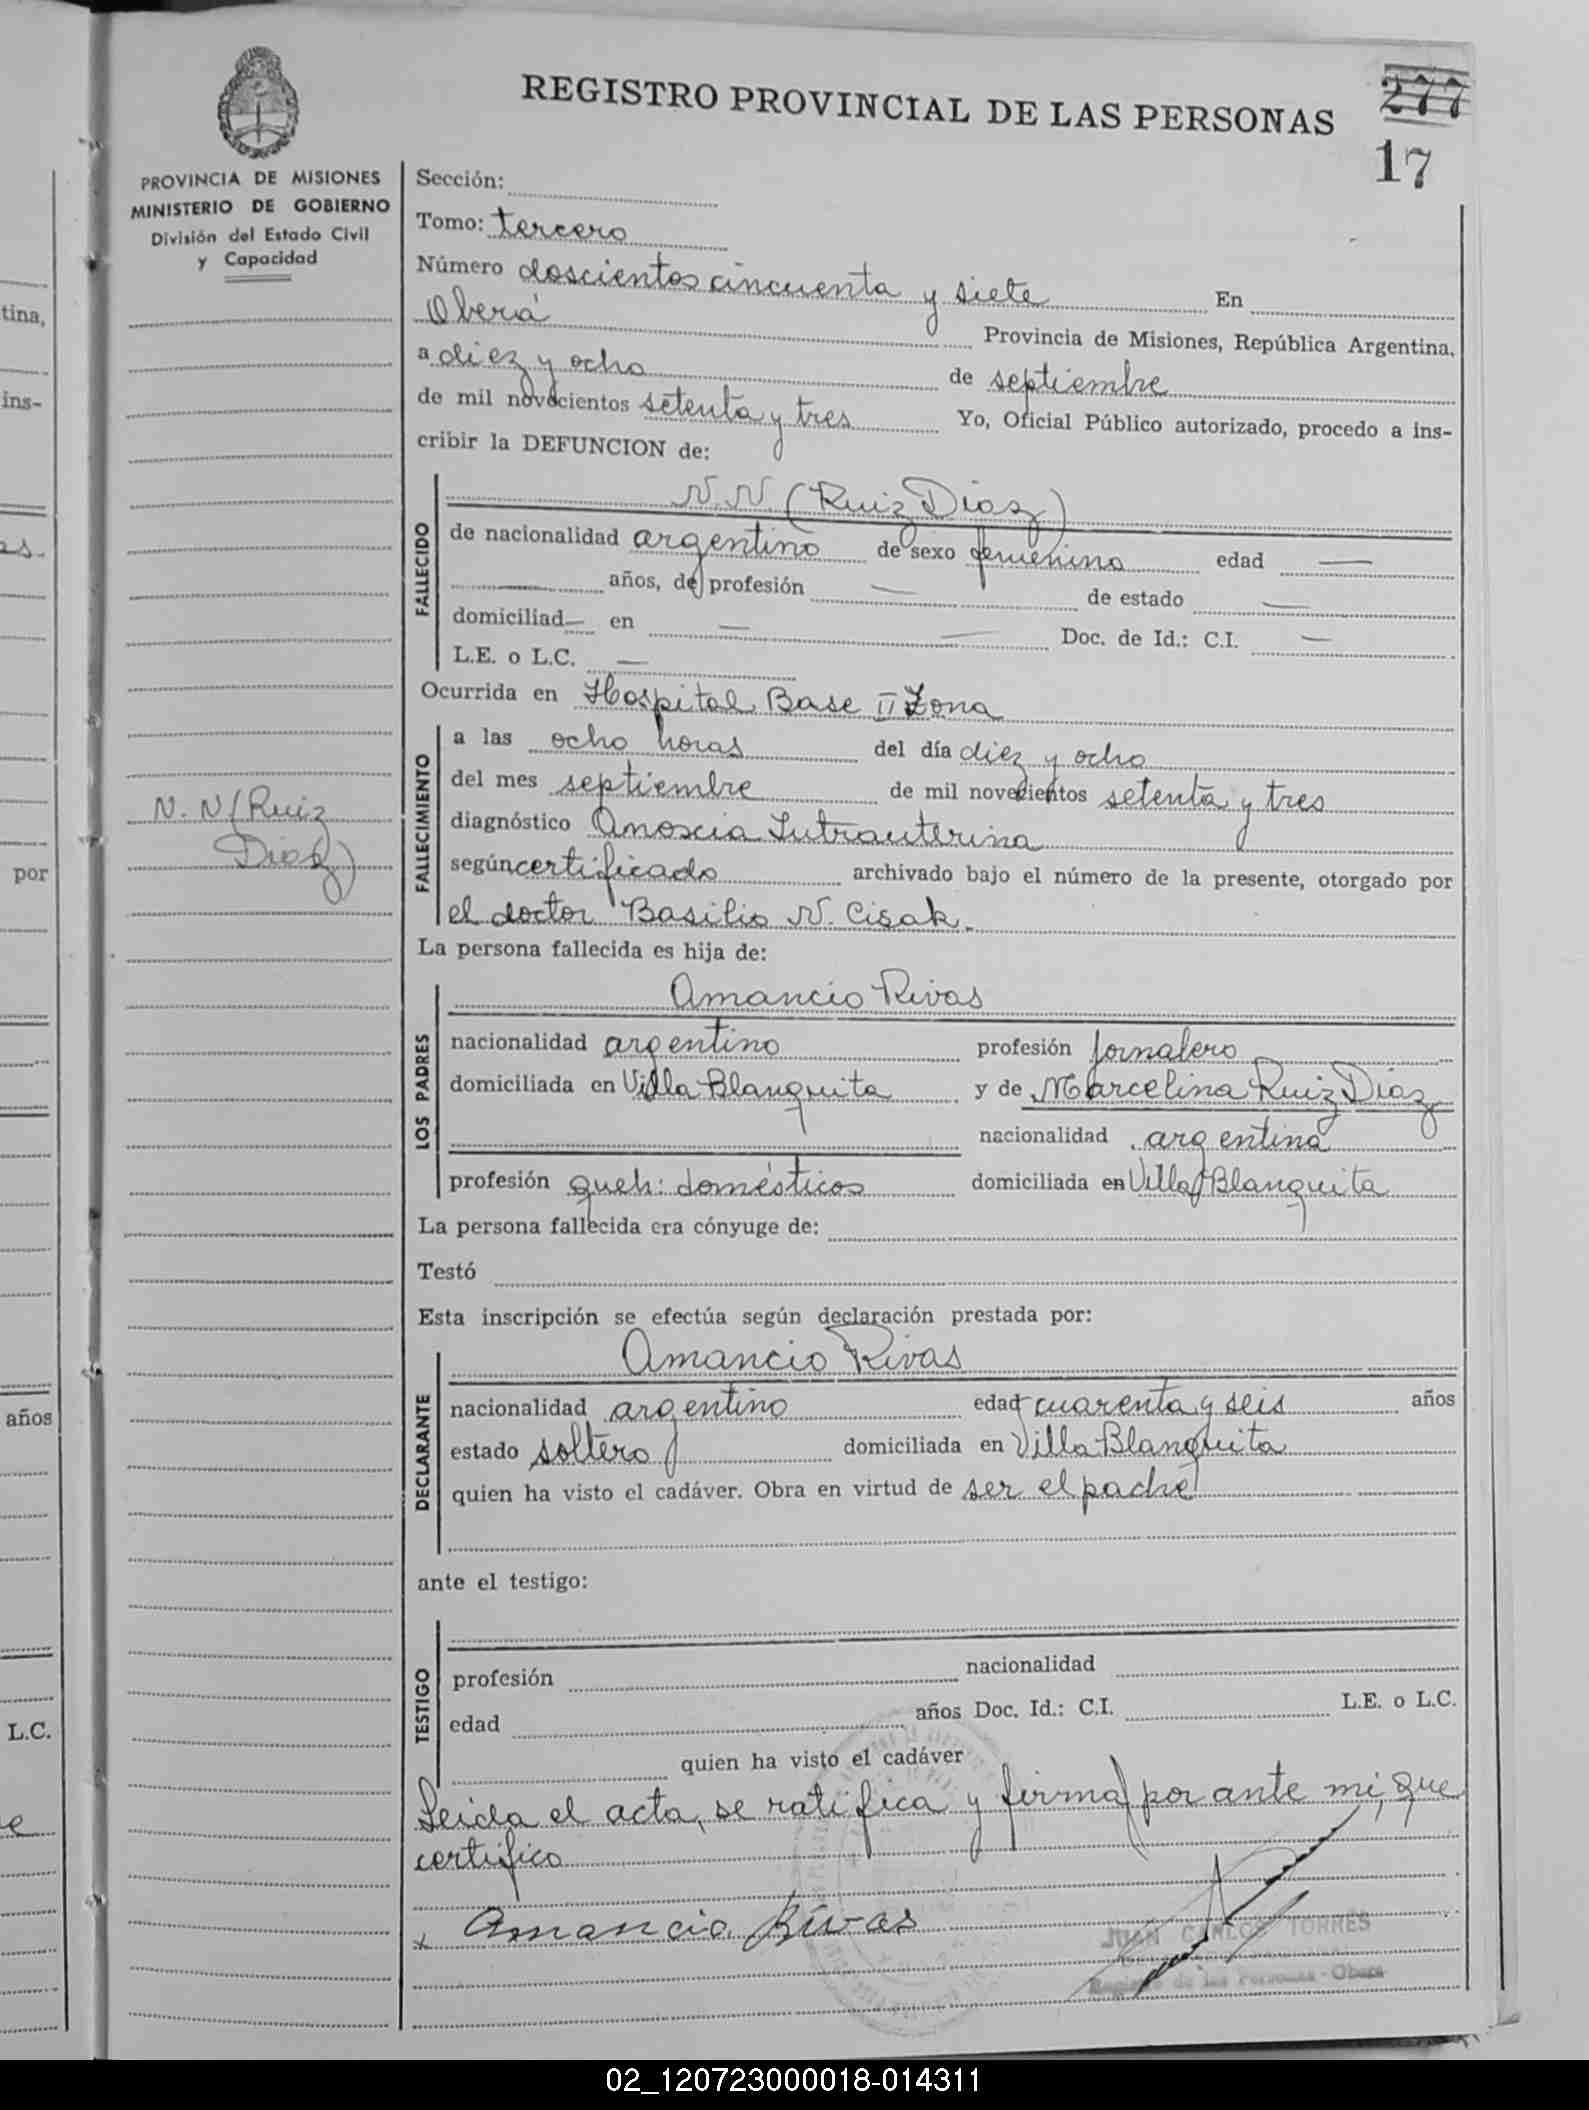 REGISTRO PROVINCIAL DE LAS PERSONAS
277
17
PROVINCIA DE MISIONES
MINISTERIO DE GOBIERNO
División del Estado Civil
y Capacidad
Sección:
Tomo: tercero
Número doscientos cincuenta y siete En
Oberá Provincia de Misiones, República Argentina,
a diez y ocho de septiembre
de mil novecientos setenta y tres Yo, Oficial Público autorizado, procedo a ins-
cribir la DEFUNCION de:
FALLECIDO
N.N. (Ruiz Díaz)
de nacionalidad argentino de sexo femenino edad —
años, de profesión — de estado —
domiciliad— en — — Doc. de Id.: C.I. —
L.E. o L.C. —
Ocurrida en Hospital Base II Zona
FALLECIMIENTO
a las ocho horas del día diez y ocho
del mes septiembre de mil novecientos setenta y tres
diagnóstico Anoxia Intrauterina
según certificado archivado bajo el número de la presente, otorgado por
el doctor Basilio N. Cisak.
N.N (Ruiz
Díaz)
La persona fallecida es hija de:
LOS PADRES
Amancio Rivas
nacionalidad argentino profesión jornalero
domiciliada en Villa Blanquita y de Marcelina Ruiz Díaz
nacionalidad argentina
profesión queh: domésticos domiciliada en Villa Blanquita
La persona fallecida era cónyuge de:
Testó
Esta inscripción se efectúa según declaración prestada por:
DECLARANTE
Amancio Rivas
nacionalidad argentino edad cuarenta y seis años
estado soltero domiciliada en Villa Blanquita
quien ha visto el cadáver. Obra en virtud de ser el padre
ante el testigo:
TESTIGO
profesión nacionalidad
edad años Doc. Id.: C.I. L.E. o L.C.
quien ha visto el cadáver
Leida el acta, se ratifica y firma por ante mi, que
certifico
x Amancio Rivas
JUAN CARLOS TORRES
Registro de las Personas - Oberá
tina,
ins-
as.
por
años
L.C.
e
02_120723000018-014311